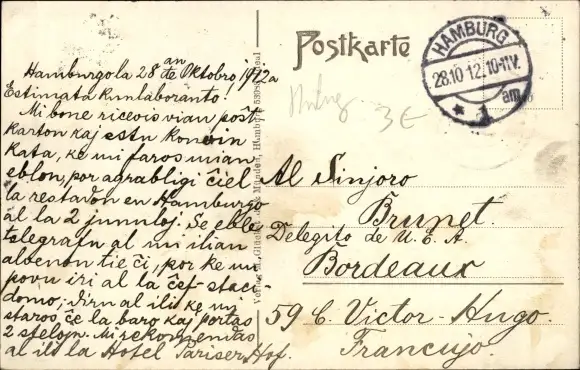 Postkarte
HAMBURG
28.10.12.10-11V.
* 1 am
3€
Hamburgo la 28an de Oktobro, 1912a
Estimata kunlaboranto!
Mi bone ricevis vian post
karton kaj estu konvin
kata, ke mi faros mian
eblon, por agrabligi ĉiel
la restadon en Hamburgo
al la 2 junuloj. Se eble
telegrafu al mi ilian
alvenon tie ĉi, por ke mi
povu iri al la ĉef-staci-
domo; diru al ili ke mi
staros ĉe la baro kaj portas
2 stelojn. Mi rekomendas
al ili la Hotel Pariser Hof.
Al Sinjoro
Brunet.
Delegito de U. E. A.
Bordeaux
59 C. Victor-Hugo.
Francujo.